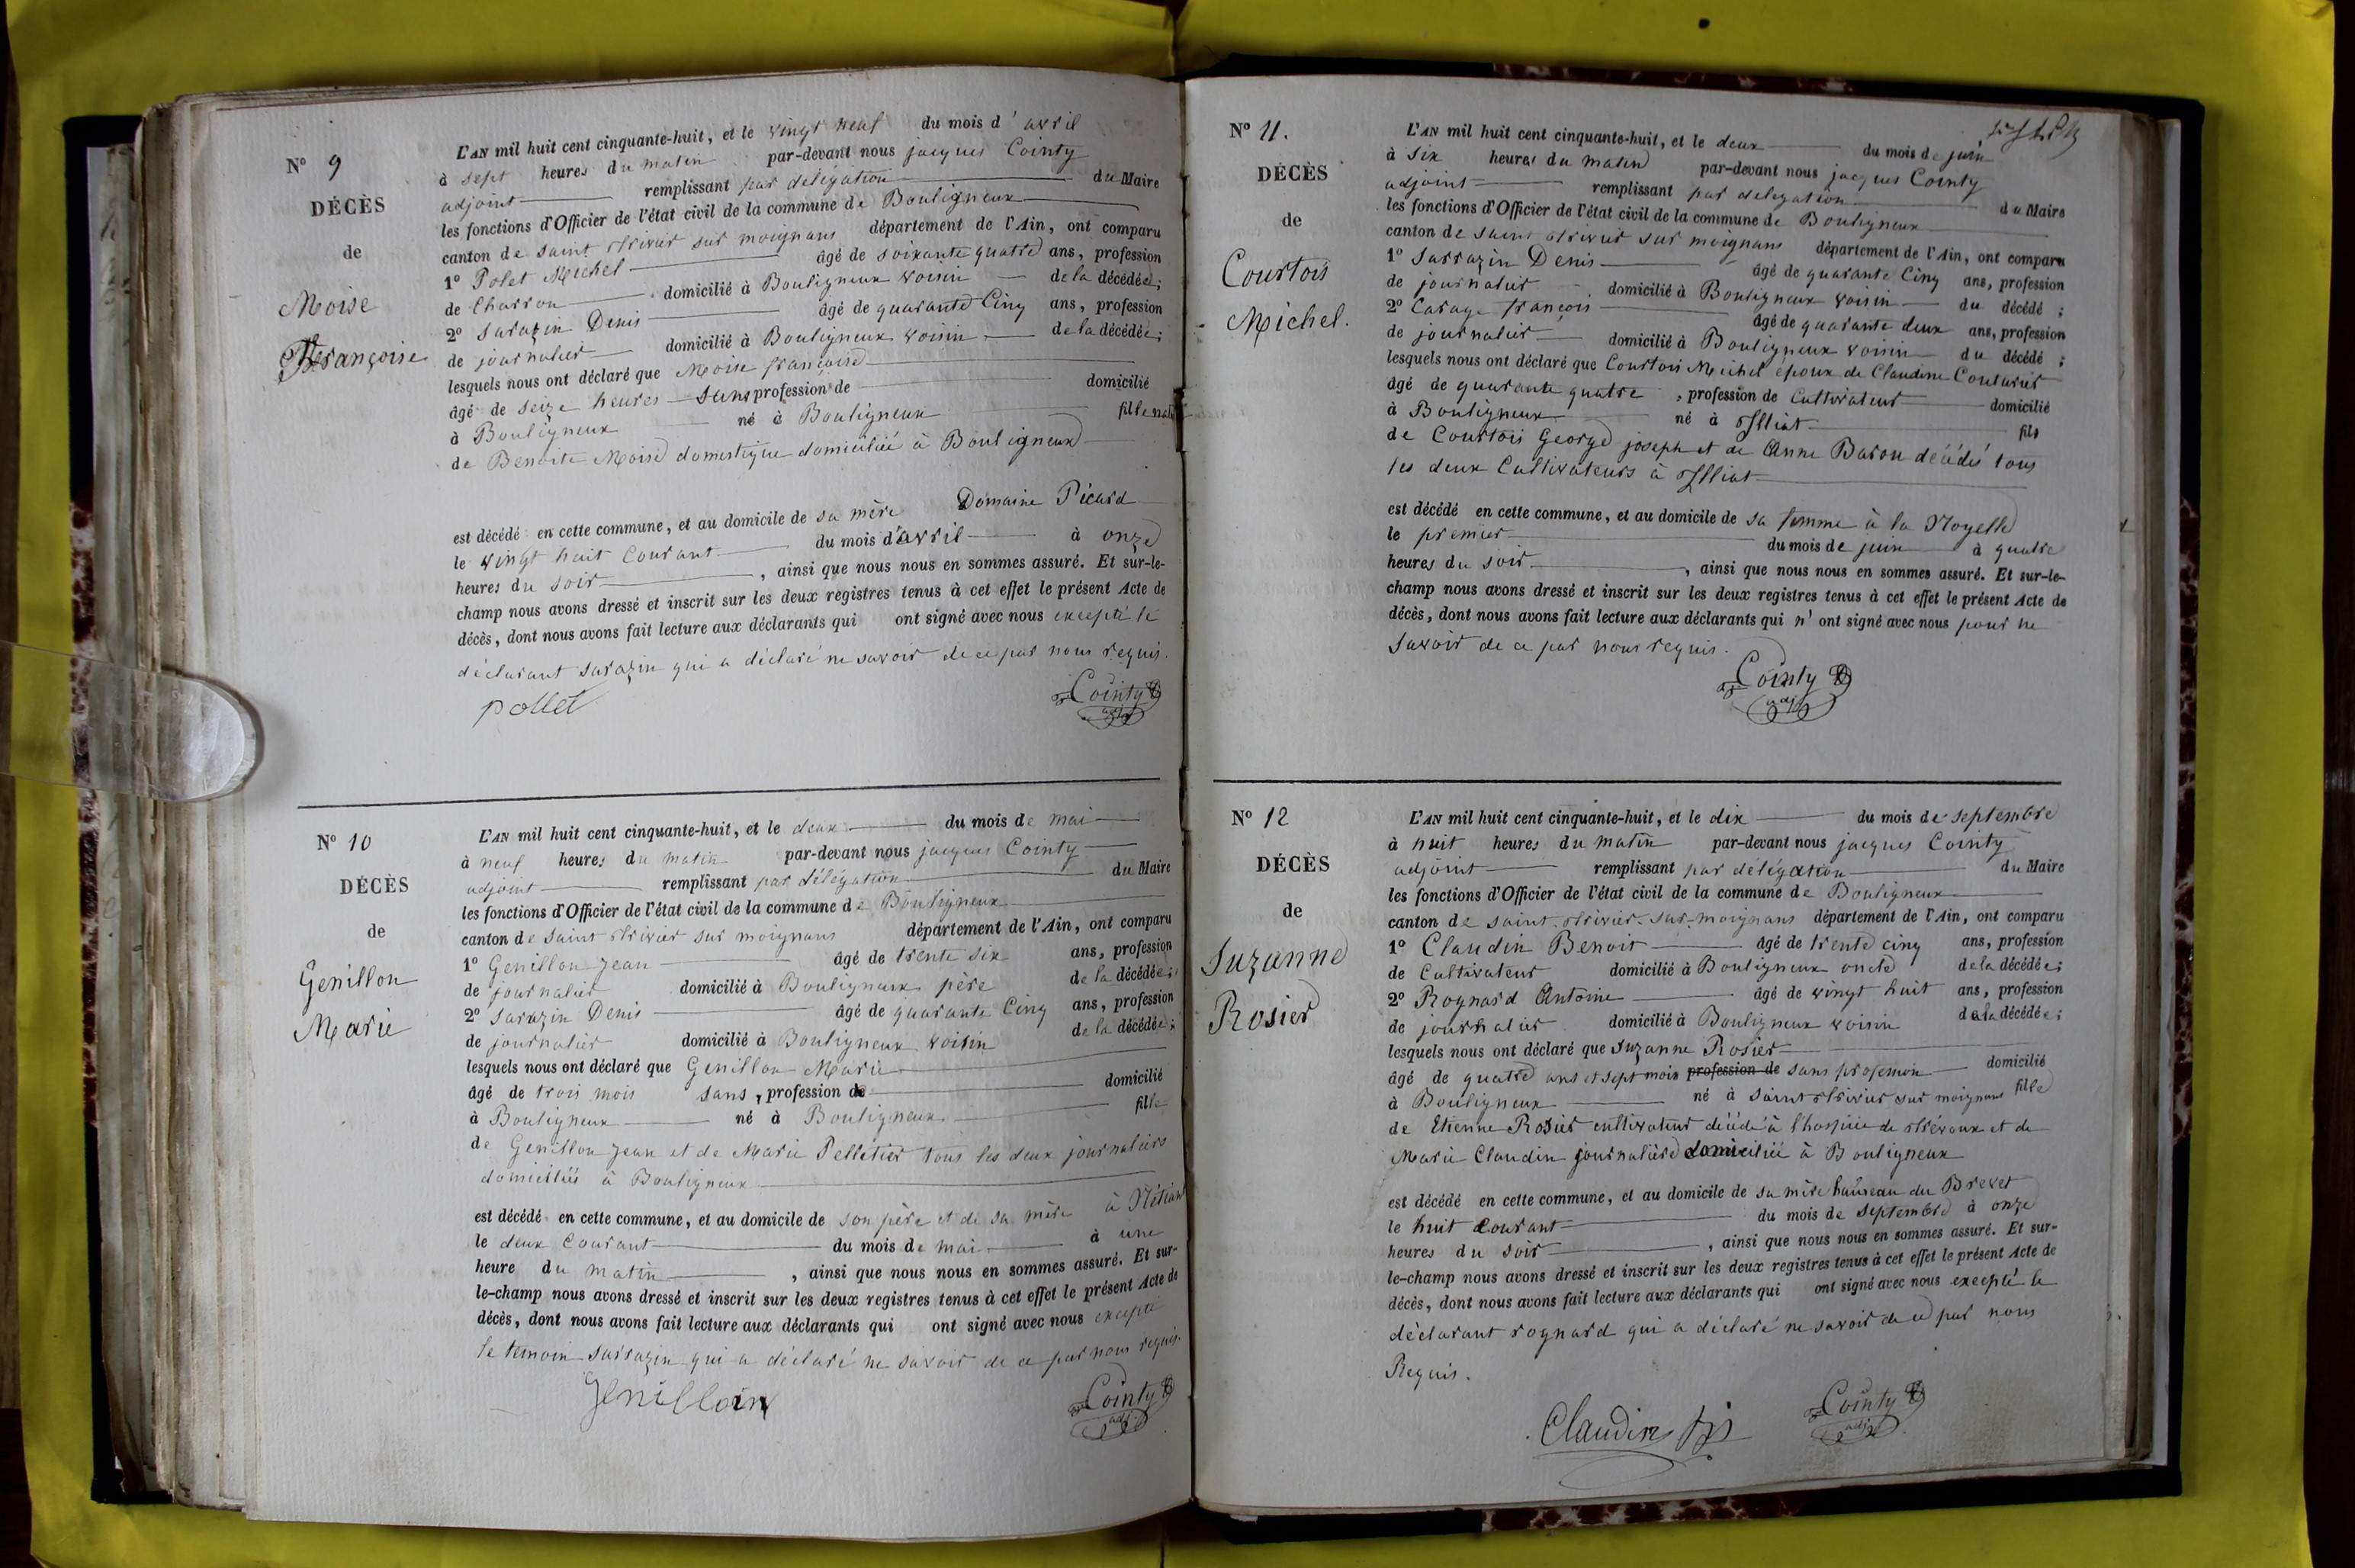 N° 9
DÉCÈS
de
Moise
Françoise
L'AN mil huit cent cinquante-huit, et le vingt neuf du mois d'avril
à sept heures du matin par-devant nous jacques Cointy
adjoint remplissant par délégation du Maire
les fonctions d'Officier de l'état civil de la commune de Bouligneux
canton de saint strivier sur moignans département de l'Ain, ont comparu
1° Polet Michel âgé de soixante quatre ans, profession
de Charron domicilié à Bouligneux voisin de la décédée;
2° sarazin Denis âgé de quarante Cinq ans, profession
de journalier domicilié à Bouligneux voisin de la décédée;
lesquels nous ont déclaré que Moise françoise
âgé de seize heures sans profession de domicilié
à Bouligneux né à Bouligneux fille
de Benoite Moise domestique domiciliée à Bouligneux
est décédé en cette commune, et au domicile de sa mère Domaine Picard
le vingt huit Courant du mois d'avril à onze
heures du soir, ainsi que nous nous en sommes assuré. Et sur-le-
champ nous avons dressé et inscrit sur les deux registres tenus à cet effet le présent Acte de
décès, dont nous avons fait lecture aux déclarants qui ont signé avec nous excepté le
déclarant sarazin qui a déclaré ne savoir de ce par nous requis.
pollet Cointy
adj
N° 10
DÉCÈS
de
Genillon
Marie
L'AN mil huit cent cinquante-huit, et le deux du mois de mai
à neuf heures du matin par-devant nous jacques Cointy
adjoint remplissant par délégation du Maire
les fonctions d'Officier de l'état civil de la commune de Bouligneux
canton de saint strivier sur moignans département de l'Ain, ont comparu
1° Genillon jean âgé de trente six ans, profession
de journalier domicilié à Bouligneux père de la décédée;
2° sarazin Denis âgé de quarante Cinq ans, profession
de journalier domicilié à Bouligneux voisin de la décédée;
lesquels nous ont déclaré que Genillon Marie
âgé de trois mois sans, profession de domicilié
à Bouligneux né à Bouligneux fille
de Genillon jean et de Marie Pelletier tous les deux journaliers
domiciliés à Bouligneux
est décédé en cette commune, et au domicile de son père et de sa mère à
le deux Courant du mois de mai à une
heure du matin, ainsi que nous nous en sommes assuré. Et sur-
le-champ nous avons dressé et inscrit sur les deux registres tenus à cet effet le présent Acte de
décès, dont nous avons fait lecture aux déclarants qui ont signé avec nous excepté
le temoin sarrazin qui a déclaré ne savoir de ce par nous requis.
Genillon Cointy
adj
N° 11.
DÉCÈS
de
Courtois
Michel.
L'AN mil huit cent cinquante-huit, et le deux du mois de juin
à six heures du matin par-devant nous jacques Cointy
adjoint remplissant par délégation du Maire
les fonctions d'Officier de l'état civil de la commune de Bouligneux
canton de saint strivier sur moignans département de l'Ain, ont comparu
1° sarrazin Denis âgé de quarante Cinq ans, profession
de journalier domicilié à Bouligneux voisin du décédé;
2° Carage françois âgé de quarante deux ans, profession
de journalier domicilié à Bouligneux voisin du décédé;
lesquels nous ont déclaré que Courtois Michel époux de Claudine Couturier
âgé de quarante quatre, profession de Cultivateur domicilié
à Bouligneux né à Illiat fils
de Courtois George joseph et de Anne Baron décédés tous
les deux Cultivateurs à Illiat
est décédé en cette commune, et au domicile de sa femme à la Noyelle
le premier du mois de juin à quatre
heures du soir, ainsi que nous nous en sommes assuré. Et sur-le-
champ nous avons dressé et inscrit sur les deux registres tenus à cet effet le présent Acte de
décès, dont nous avons fait lecture aux déclarants qui n'ont signé avec nous pour ne
savoir de ce par nous requis.
Cointy
adj
N° 12
DÉCÈS
de
Suzanne
Rosier
L'AN mil huit cent cinquante-huit, et le dix du mois de septembre
à huit heures du matin par-devant nous jacques Cointy
adjoint remplissant par délégation du Maire
les fonctions d'Officier de l'état civil de la commune de Bouligneux
canton de saint strivier-sur-moignans département de l'Ain, ont comparu
1° Claudin Benoit âgé de trente cinq ans, profession
de Cultivateur domicilié à Bouligneux oncle de la décédée;
2° Rognard Antoine âgé de vingt huit ans, profession
de journalier domicilié à Bouligneux voisin de la décédée;
lesquels nous ont déclaré que Suzanne Rosier
âgé de quatre ans et sept mois profession de sans profession domicilié
à Bouligneux né à saint strivier sur moignans fille
de Etienne Rosier cultivateur décédé à l'hospice de strévoux et de
Marie Claudin journalière domiciliée à Bouligneux
est décédé en cette commune, et au domicile de sa mère hameau du Brevet
le huit Courant du mois de septembre à onze
heures du soir, ainsi que nous nous en sommes assuré. Et sur-
le-champ nous avons dressé et inscrit sur les deux registres tenus à cet effet le présent Acte de
décès, dont nous avons fait lecture aux déclarants qui ont signé avec nous excepté le
déclarant rognard qui a déclaré ne savoir de ce par nous
Requis.
Claudin fils Cointy
adj